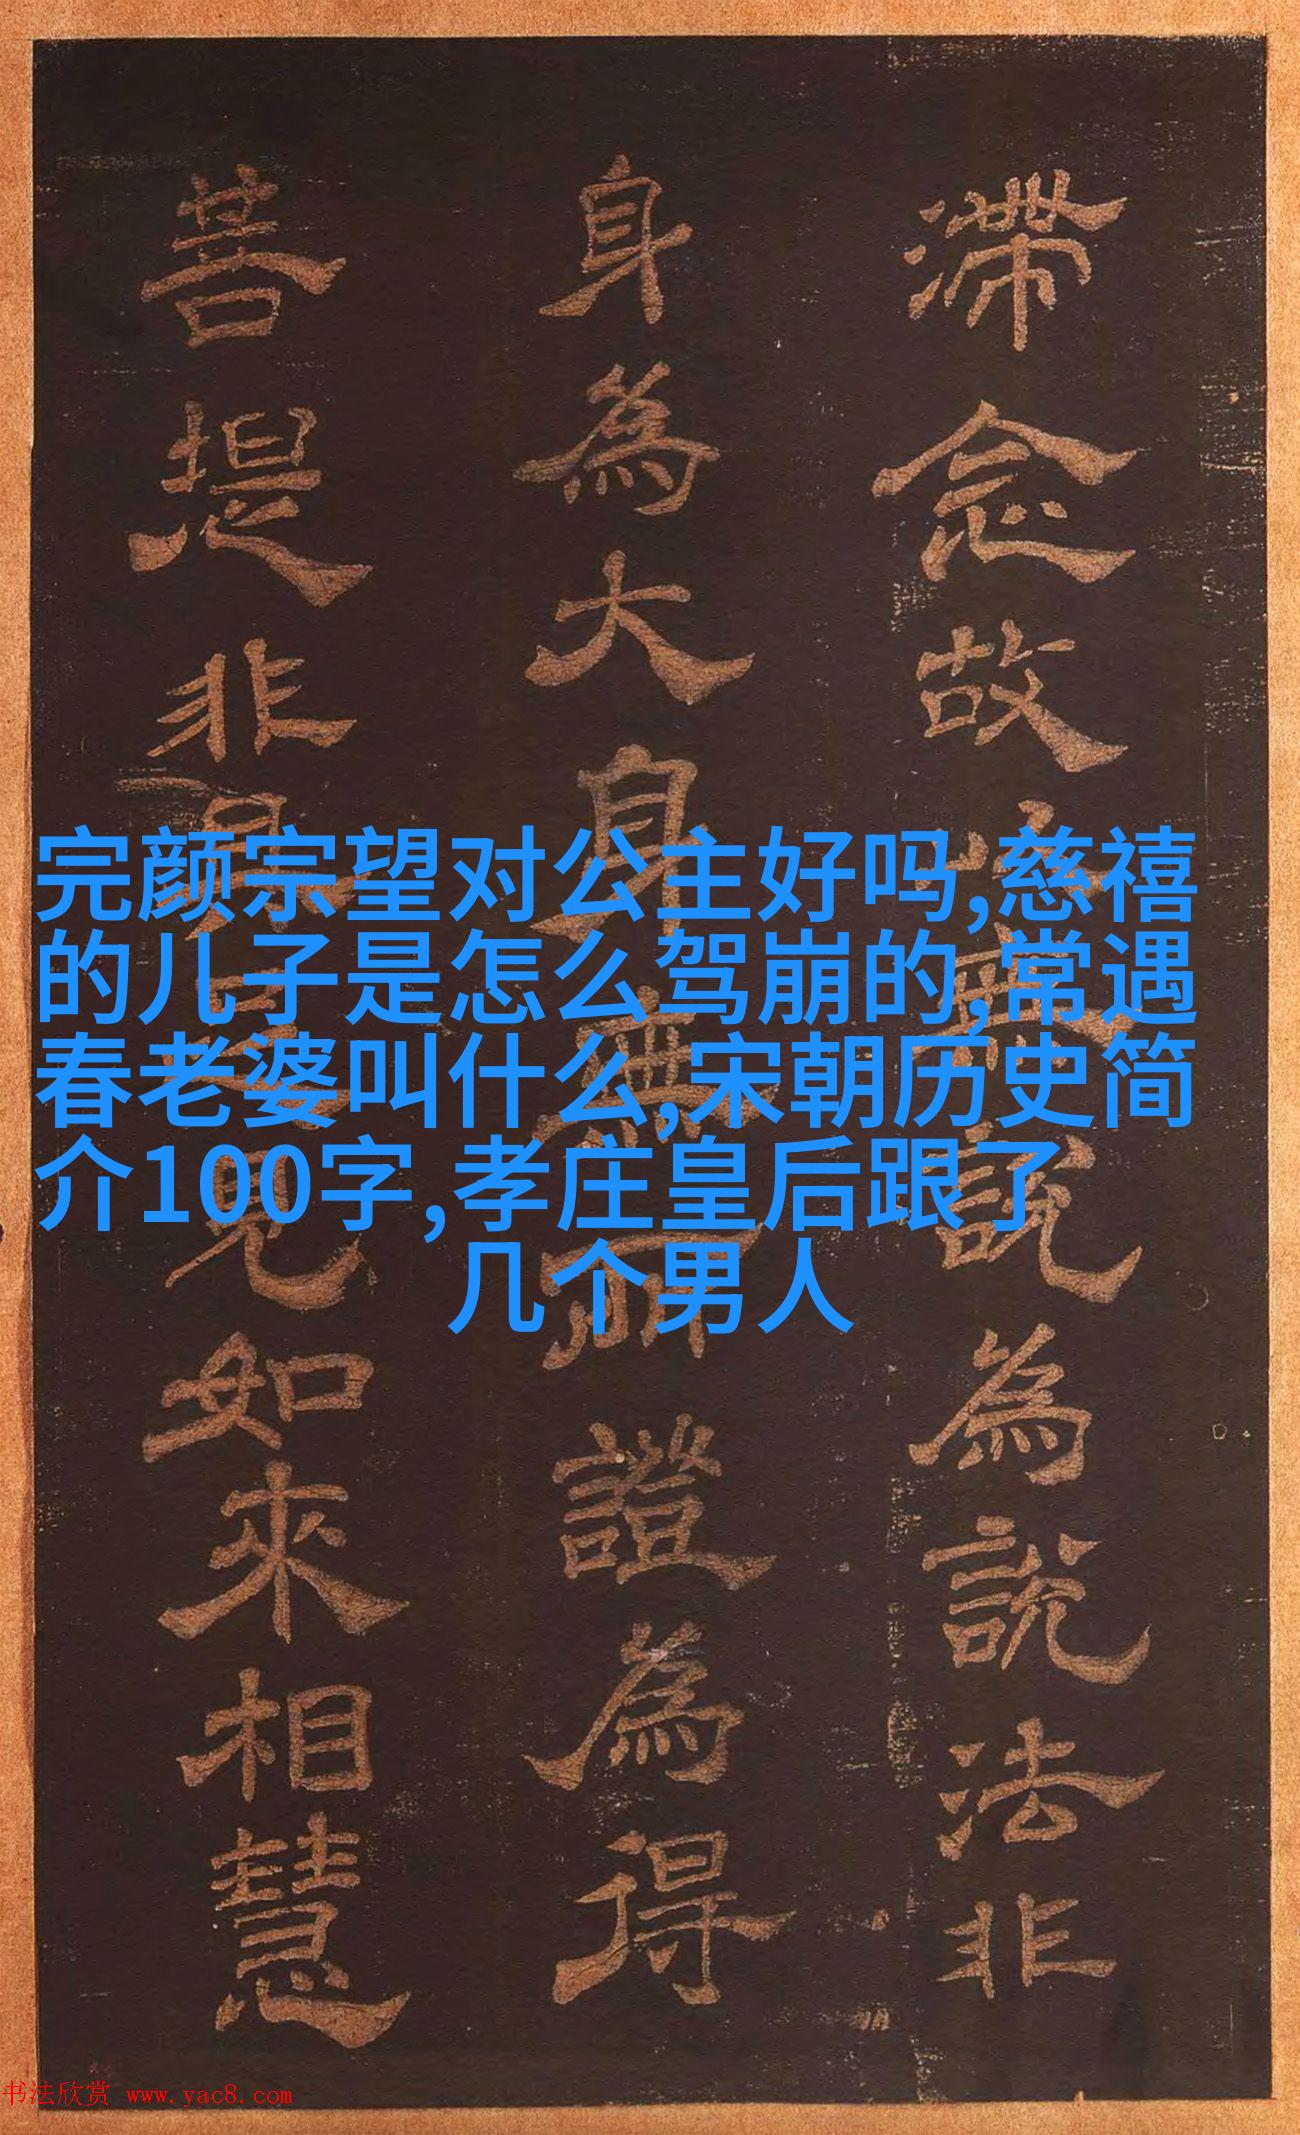 滯念故說為說法非
身為大身無所證為得
菩提非見如來相慧
完颜宗望对公主好吗,慈禧
的儿子是怎么驾崩的,常遇
春老婆叫什么,宋朝历史简
介100字,孝庄皇后跟了
几个男人
书法欣赏 www.yac8.com